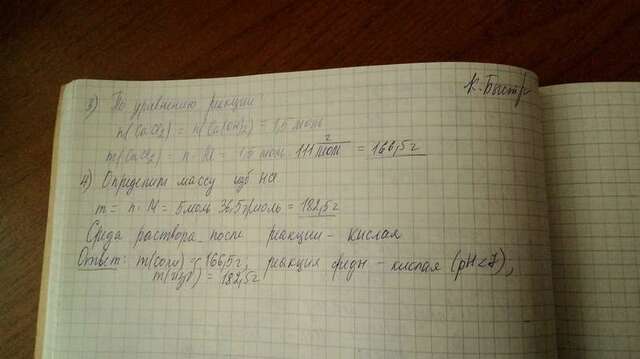 К. Быстр
3) По уравнению реакции
n(CaCl₂) = n(Ca(OH)₂) = 1,5 моль
m(CaCl₂) = n · M = 1,5 моль · 111 г/моль = 166,5г
4) Определим массу изб HCl
m = n · M = 5моль 36,5г/моль = 182,5г
Среда раствора после реакции - кислая
Ответ: m(соли) = 166,5г, реакция среды - кислая (pH<7),
m(изб) = 182,5г